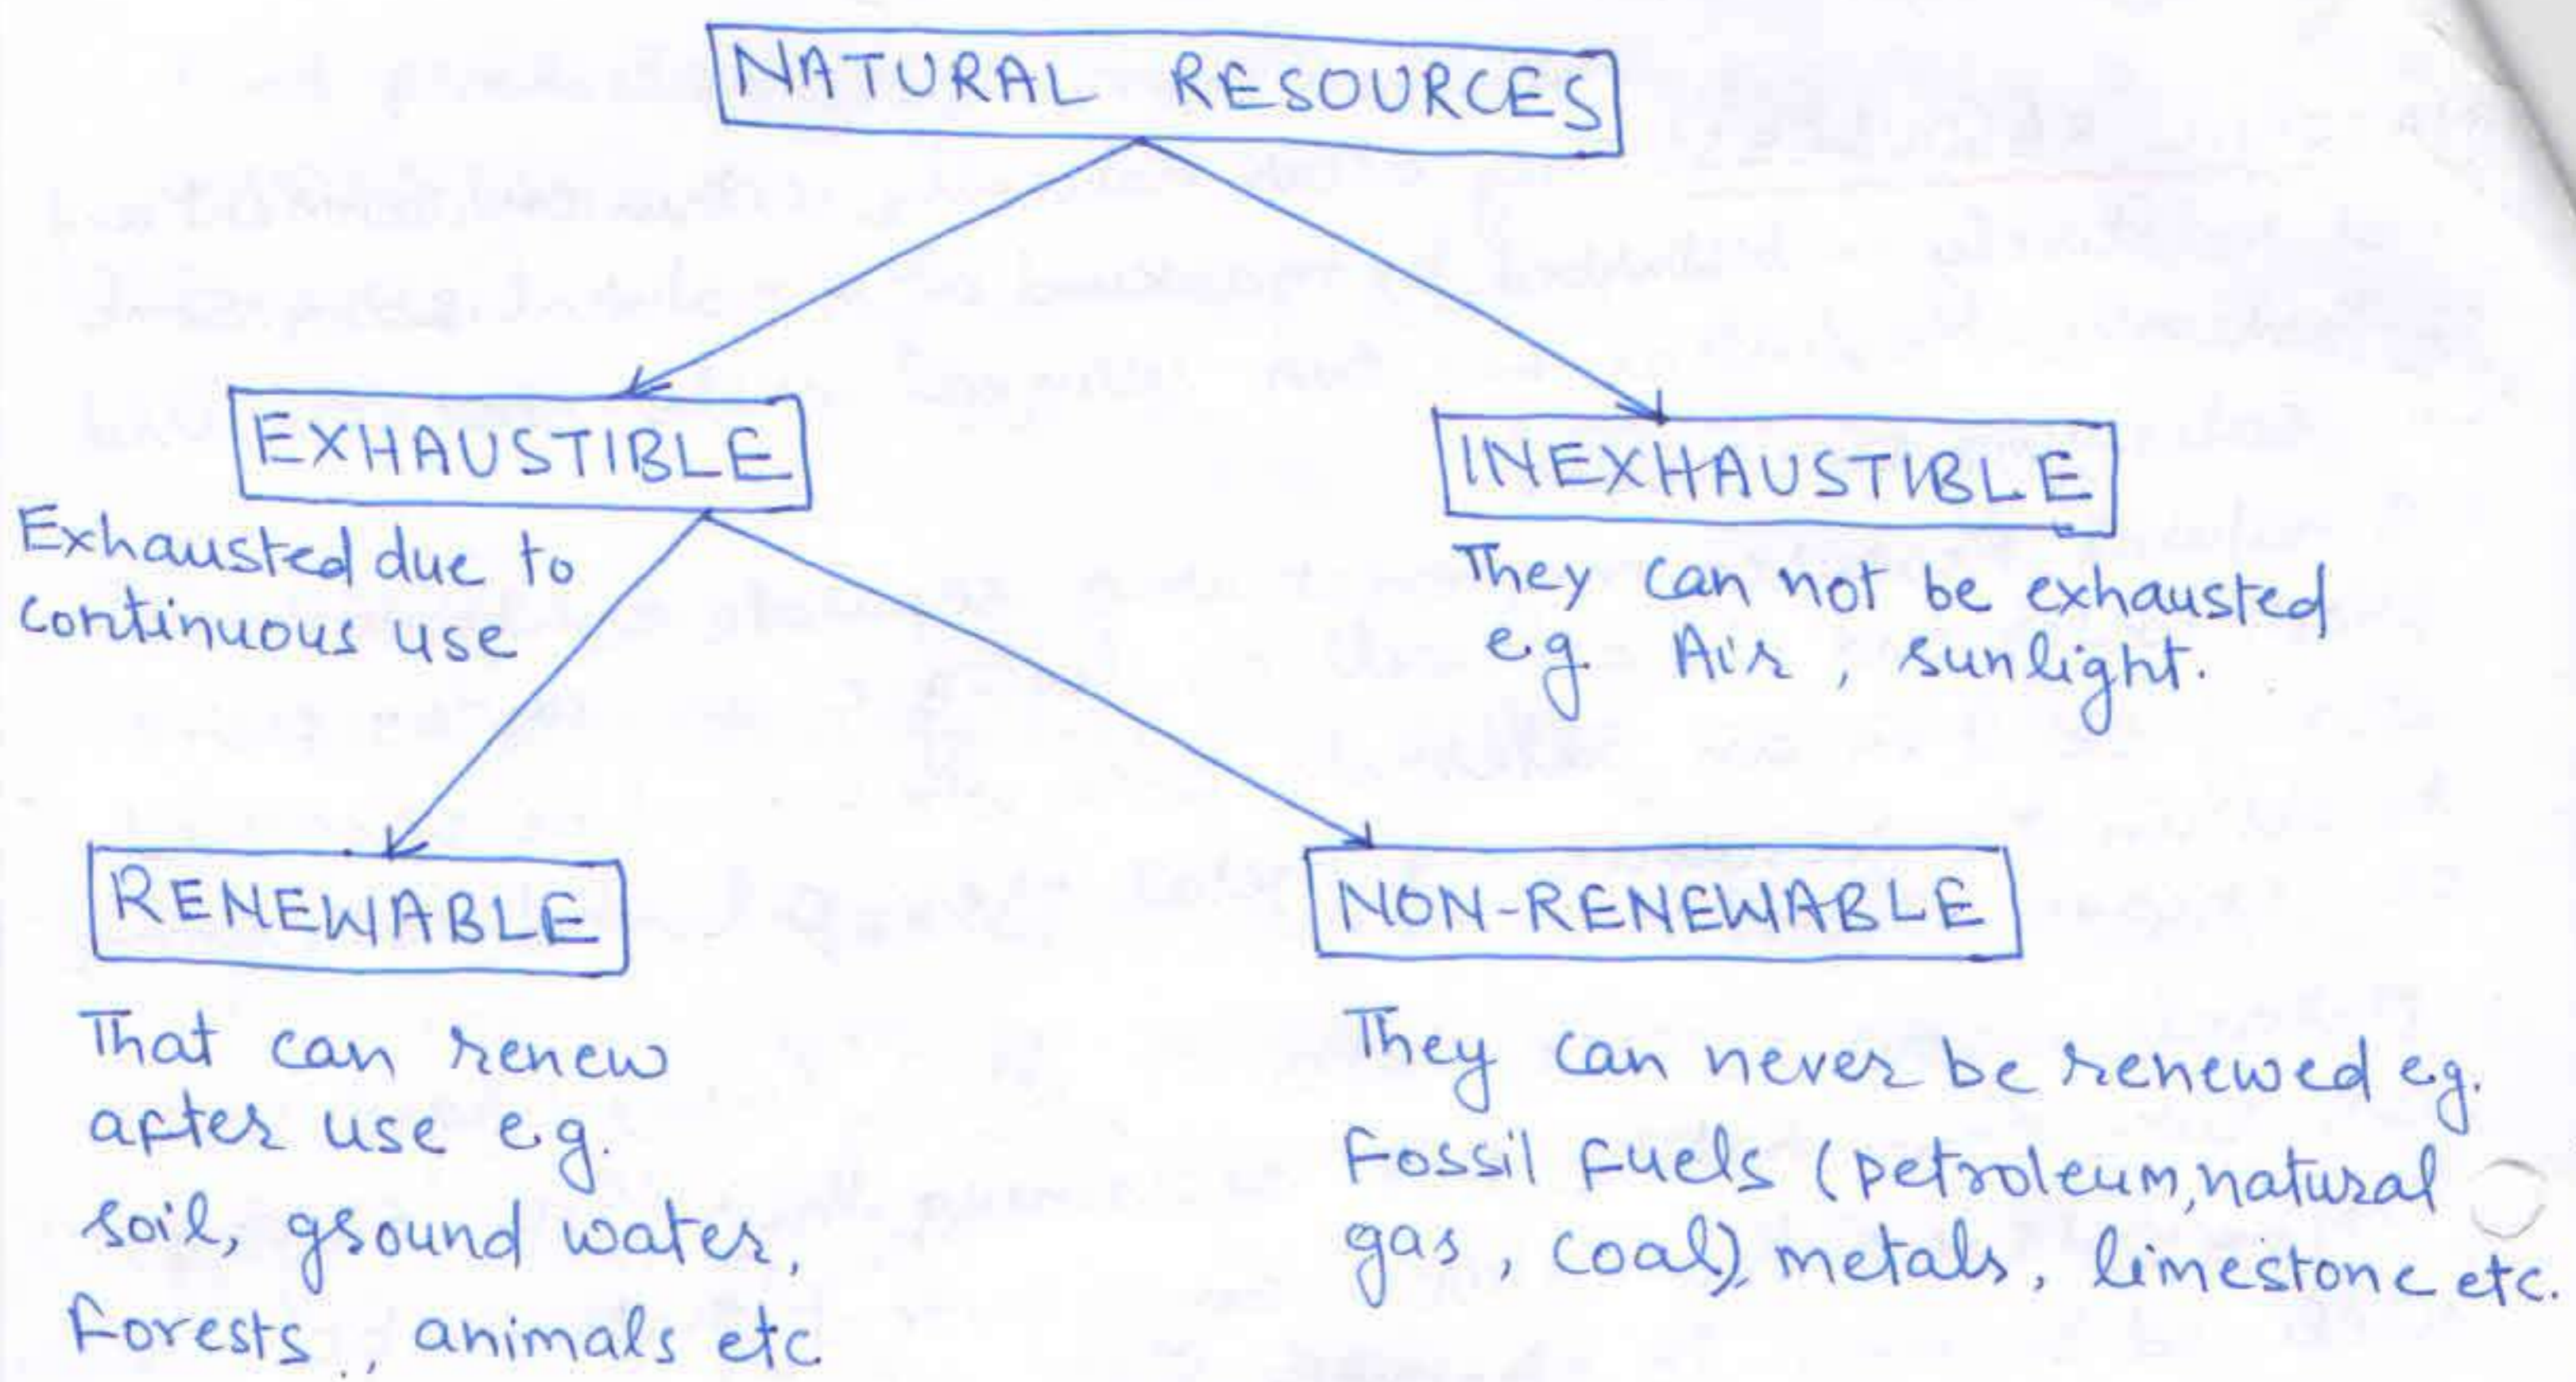 NATURAL RESOURCES
EXHAUSTIBLE
Exhausted due to
continuous use
INEXHAUSTIBLE
They can not be exhausted
eg. Air, sunlight.
RENEWABLE
That can renew
after use eg.
soil, ground water,
Forests, animals etc
NON-RENEWABLE
They can never be renewed eg.
Fossil fuels (petroleum, natural
gas, coal), metals, limestone etc.